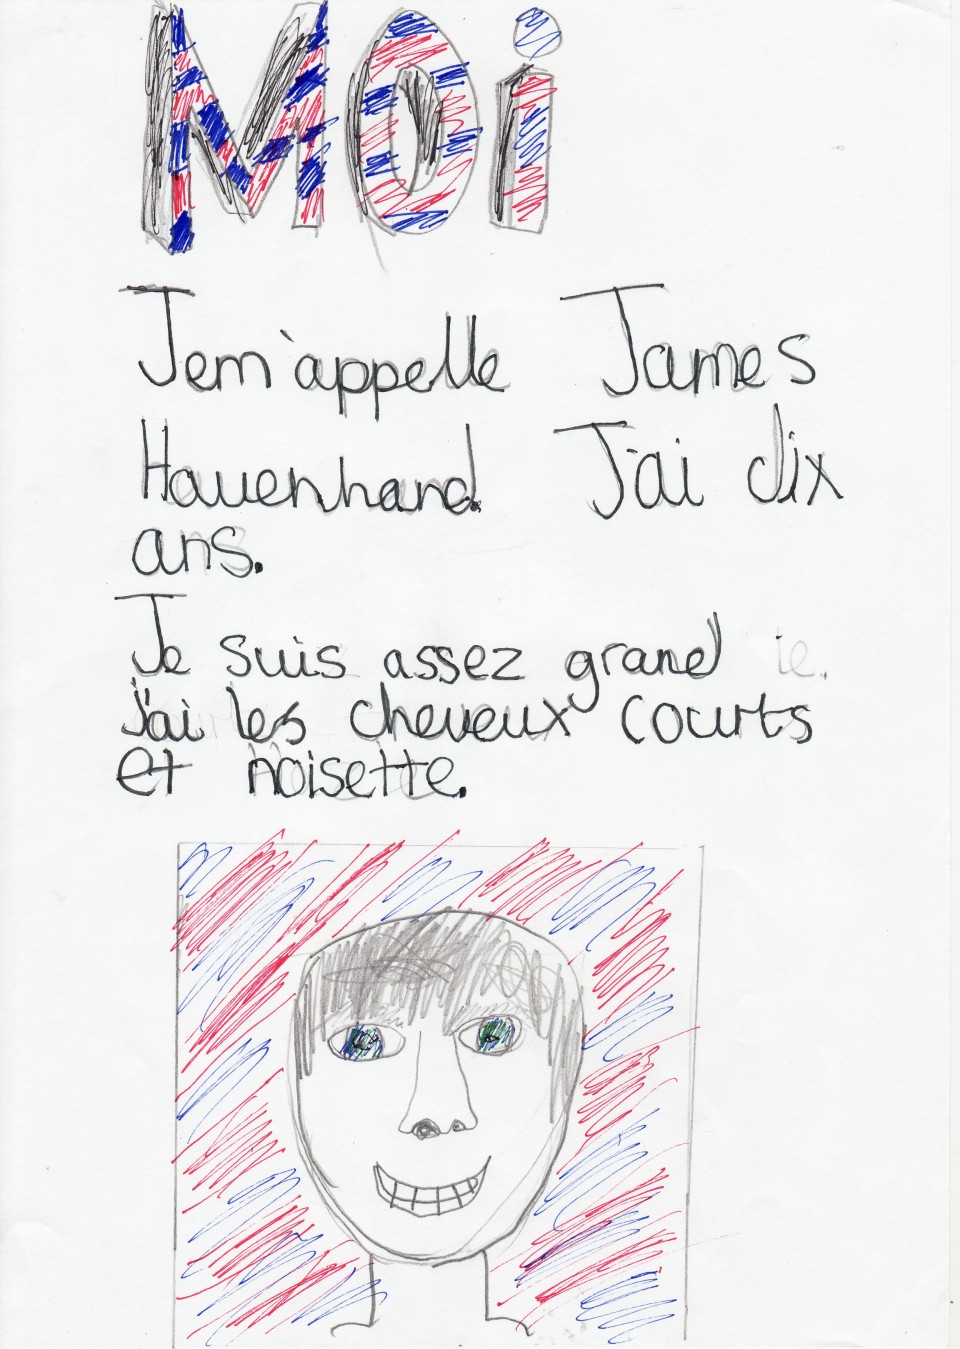 MOi
Jem'appelle James
Hauenhand. J'ai dix
ans.
Je suis assez grand
j'ai les cheveux courts
et noisette.